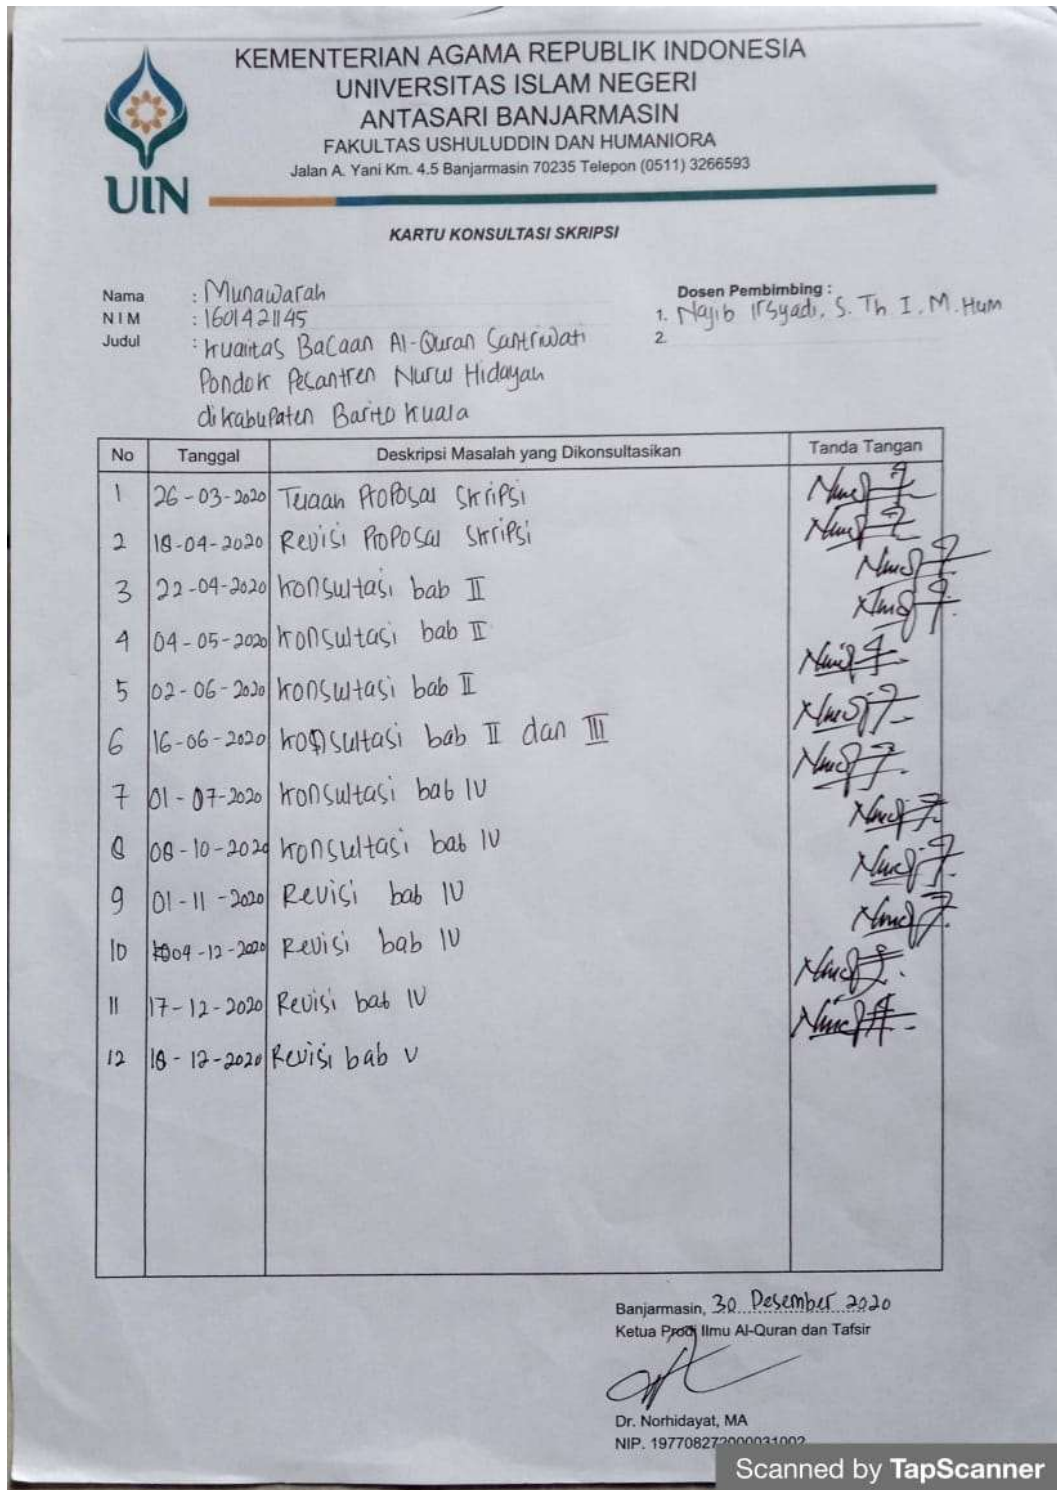 KEMENTERIAN AGAMA REPUBLIK INDONESIA
UNIVERSITAS ISLAM NEGERI
ANTASARI BANJARMASIN
FAKULTAS USHULUDDIN DAN HUMANIORA
Jalan A. Yani Km. 4.5 Banjarmasin 70235 Telepon (0511) 3266593
UIN
KARTU KONSULTASI SKRIPSI
Nama : Munawarah
NIM : 1601421145
Judul : Kualitas Bacaan Al-Quran Santriwati
Pondok Pesantren Nurul Hidayah
di kabupaten Barito Kuala
Dosen Pembimbing :
1. Najib Irsyadi, S. Th I. M. Hum
2.
No Tanggal Deskripsi Masalah yang Dikonsultasikan Tanda Tangan
1 26-03-2020 Telaah Proposal Skripsi
2 18-04-2020 Revisi Proposal Skripsi
3 22-04-2020 konsultasi bab II
4 04-05-2020 konsultasi bab II
5 02-06-2020 konsultasi bab II
6 16-06-2020 konsultasi bab II dan III
7 01-07-2020 konsultasi bab IV
8 08-10-2020 konsultasi bab IV
9 01-11-2020 Revisi bab IV
10 04-12-2020 Revisi bab IV
11 17-12-2020 Revisi bab IV
12 18-12-2020 Revisi bab V
Banjarmasin, 30 Desember 2020
Ketua Prodi Ilmu Al-Quran dan Tafsir
Dr. Norhidayat, MA
NIP. 197708272000031002
Scanned by TapScanner